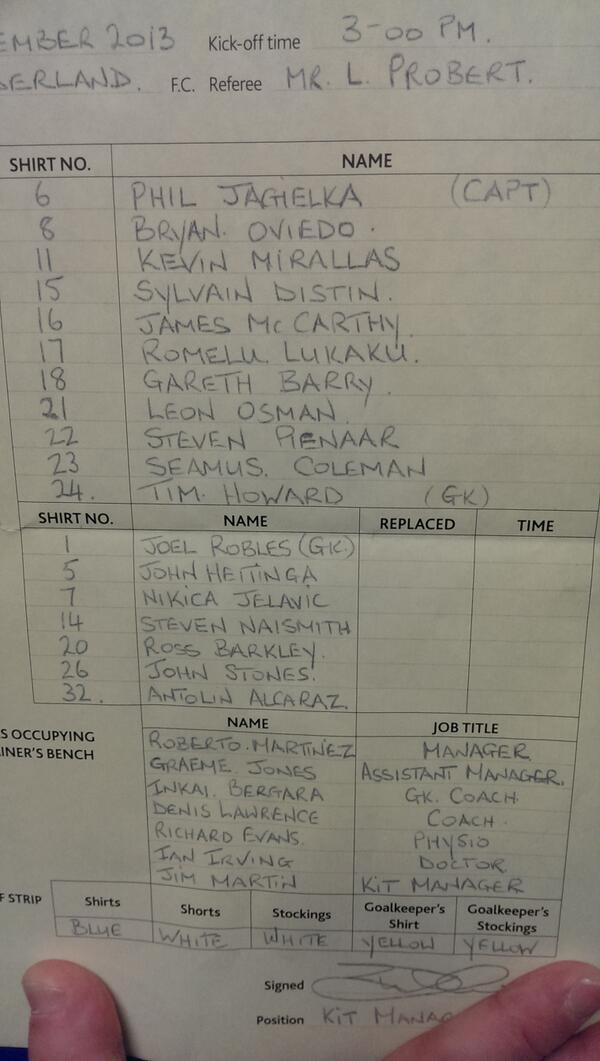 EMBER 2013 Kick-off time 3-00 PM.
DERLAND. F.C. Referee MR. L. PROBERT.
SHIRT NO. NAME
6 PHIL JAGIELKA (CAPT)
8 BRYAN. OVIEDO.
11 KEVIN MIRALLAS
15 SYLVAIN DISTIN.
16 JAMES McCARTHY.
17 ROMELU. LUKAKU.
18 GARETH BARRY.
21 LEON OSMAN.
22 STEVEN PIENAAR
23 SEAMUS. COLEMAN
24. TIM. HOWARD (GK)
SHIRT NO. NAME REPLACED TIME
1 JOEL ROBLES (GK.)
5 JOHN HEITINGA
7 NIKICA JELAVIC
14 STEVEN NAISMITH
20 ROSS BARKLEY.
26 JOHN STONES.
32. ANTOLIN ALCARAZ.
S OCCUPYING
INER'S BENCH
NAME JOB TITLE
ROBERTO. MARTINEZ MANAGER
GRAEME. JONES ASSISTANT MANAGER.
INKAI. BERGARA GK. COACH.
DENIS LAWRENCE COACH.
RICHARD EVANS. PHYSIO
IAN IRVING DOCTOR
JIM MARTIN KIT MANAGER
F STRIP Shirts Shorts Stockings Goalkeeper's Shirt Goalkeeper's Stockings
BLUE WHITE WHITE YELLOW YELLOW
Signed
Position KIT MANAG